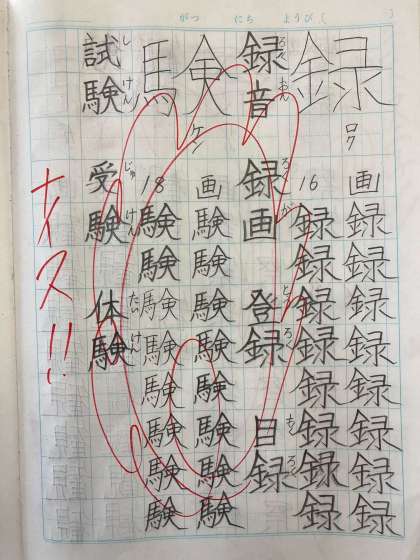 がつ にち ようび( )
録
ロク
16画
録録録録録録録録
録録録録録録録録
録音 録画 登録 目録
ろくおん ろくが とうろく もくろく
験
ケン
18画
験験験験験験験験
験験験験験験験験
試験 受験 体験
しけん じゅけん たいけん
ナイス!!